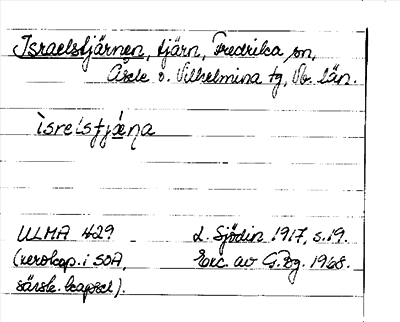 Israelstjärnen, tjärn, Fredrika sn,
Åsele o. Vilhelmina tg, Vb. län.
ìsrelstjæ̀ṇa
ULMA 429 L. Sjödin 1917, s. 19.
(xerokop. i SOA, Exc. av G. Pg. 1968.
särsk. kapsel).